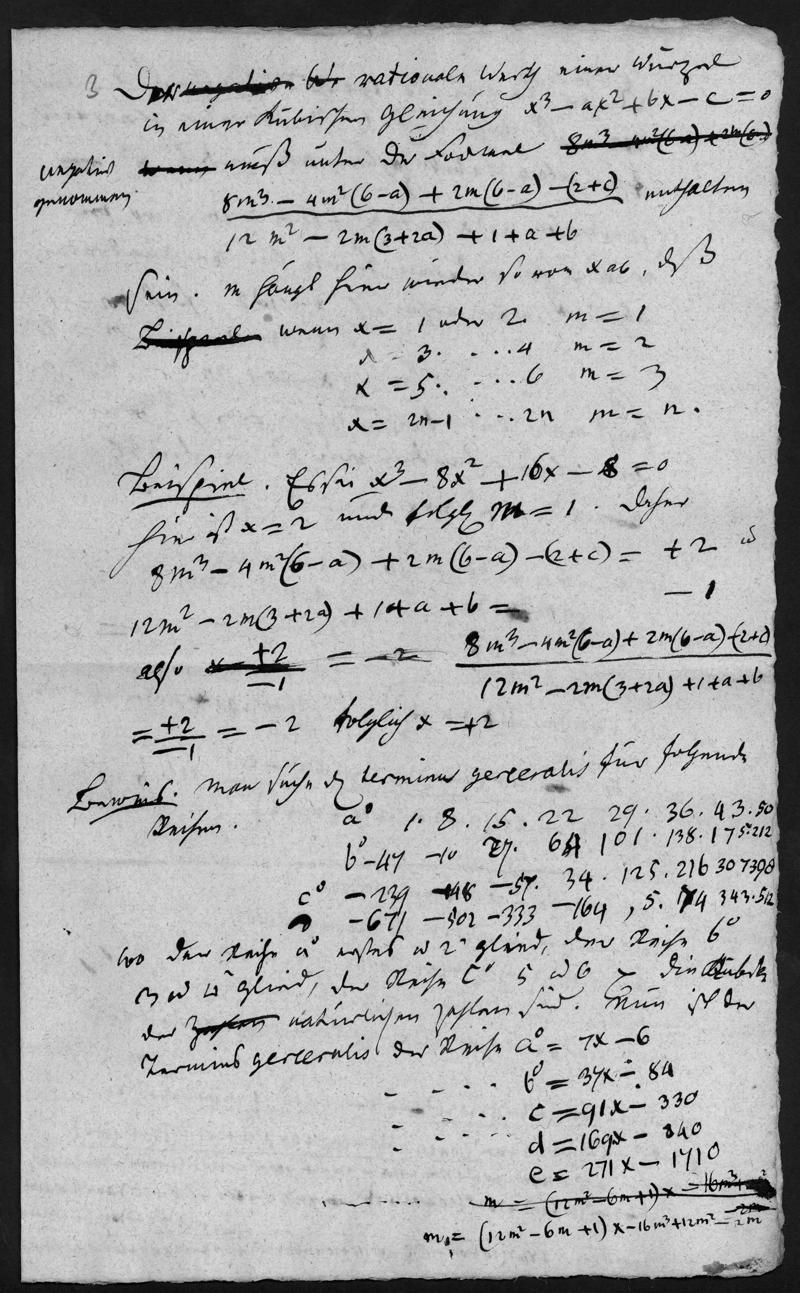 3 Der rationale Werth einer Wurzel
in einer Kubischen Gleichung x³ − ax² + bx − c = 0
negativ genommen
muß unter der Formel
8m³ − 4m²(6−a) + 2m(6−a) − (2+c) enthalten
12m² − 2m(3+2a) + 1 + a + b
sein. m hängt hier wieder so von x ab, daß
wenn x = 1 oder 2 m = 1
x = 3. ...4 m = 2
x = 5. ...6 m = 3
x = 2n−1 ...2n m = n.
Beispiel. Es sei x³ − 8x² + 16x − 8 = 0
hier ist x = 2 und folgl. m = 1. Daher
8m³ − 4m²(6−a) + 2m(6−a) − (2+c) = +2
12m² − 2m(3+2a) + 1 + a + b = − 1
also 8m³ − 4m²(6−a) + 2m(6−a) − (2+c)
12m² − 2m(3+2a) + 1 + a + b
= +2/−1 = −2 folglich x = +2
Beweis. Man suche den terminus generalis für folgende
Reihen. a° 1. 8. 15. 22 29. 36. 43. 50
b° −47 −10 27. 64 101. 138. 175. 212
c° −239 −148 −57. 34. 125. 216 307 398
−671 −502 −333 −164, 5. 174 343. 512
wo der Reihe a° erstes u 2tes Glied, der Reihe b°
3 u 4 Glied, der Reihe c° 5 u 6 die Kuben
der natürlichen Zahlen sind. Nun ist der
Terminus generalis der Reihe a° = 7x − 6
b° = 37x − 84
c = 91x − 330
d = 169x − 840
e = 271x − 1710
m = (12m² − 6m + 1)x − 16m³ + 12m² − 2m